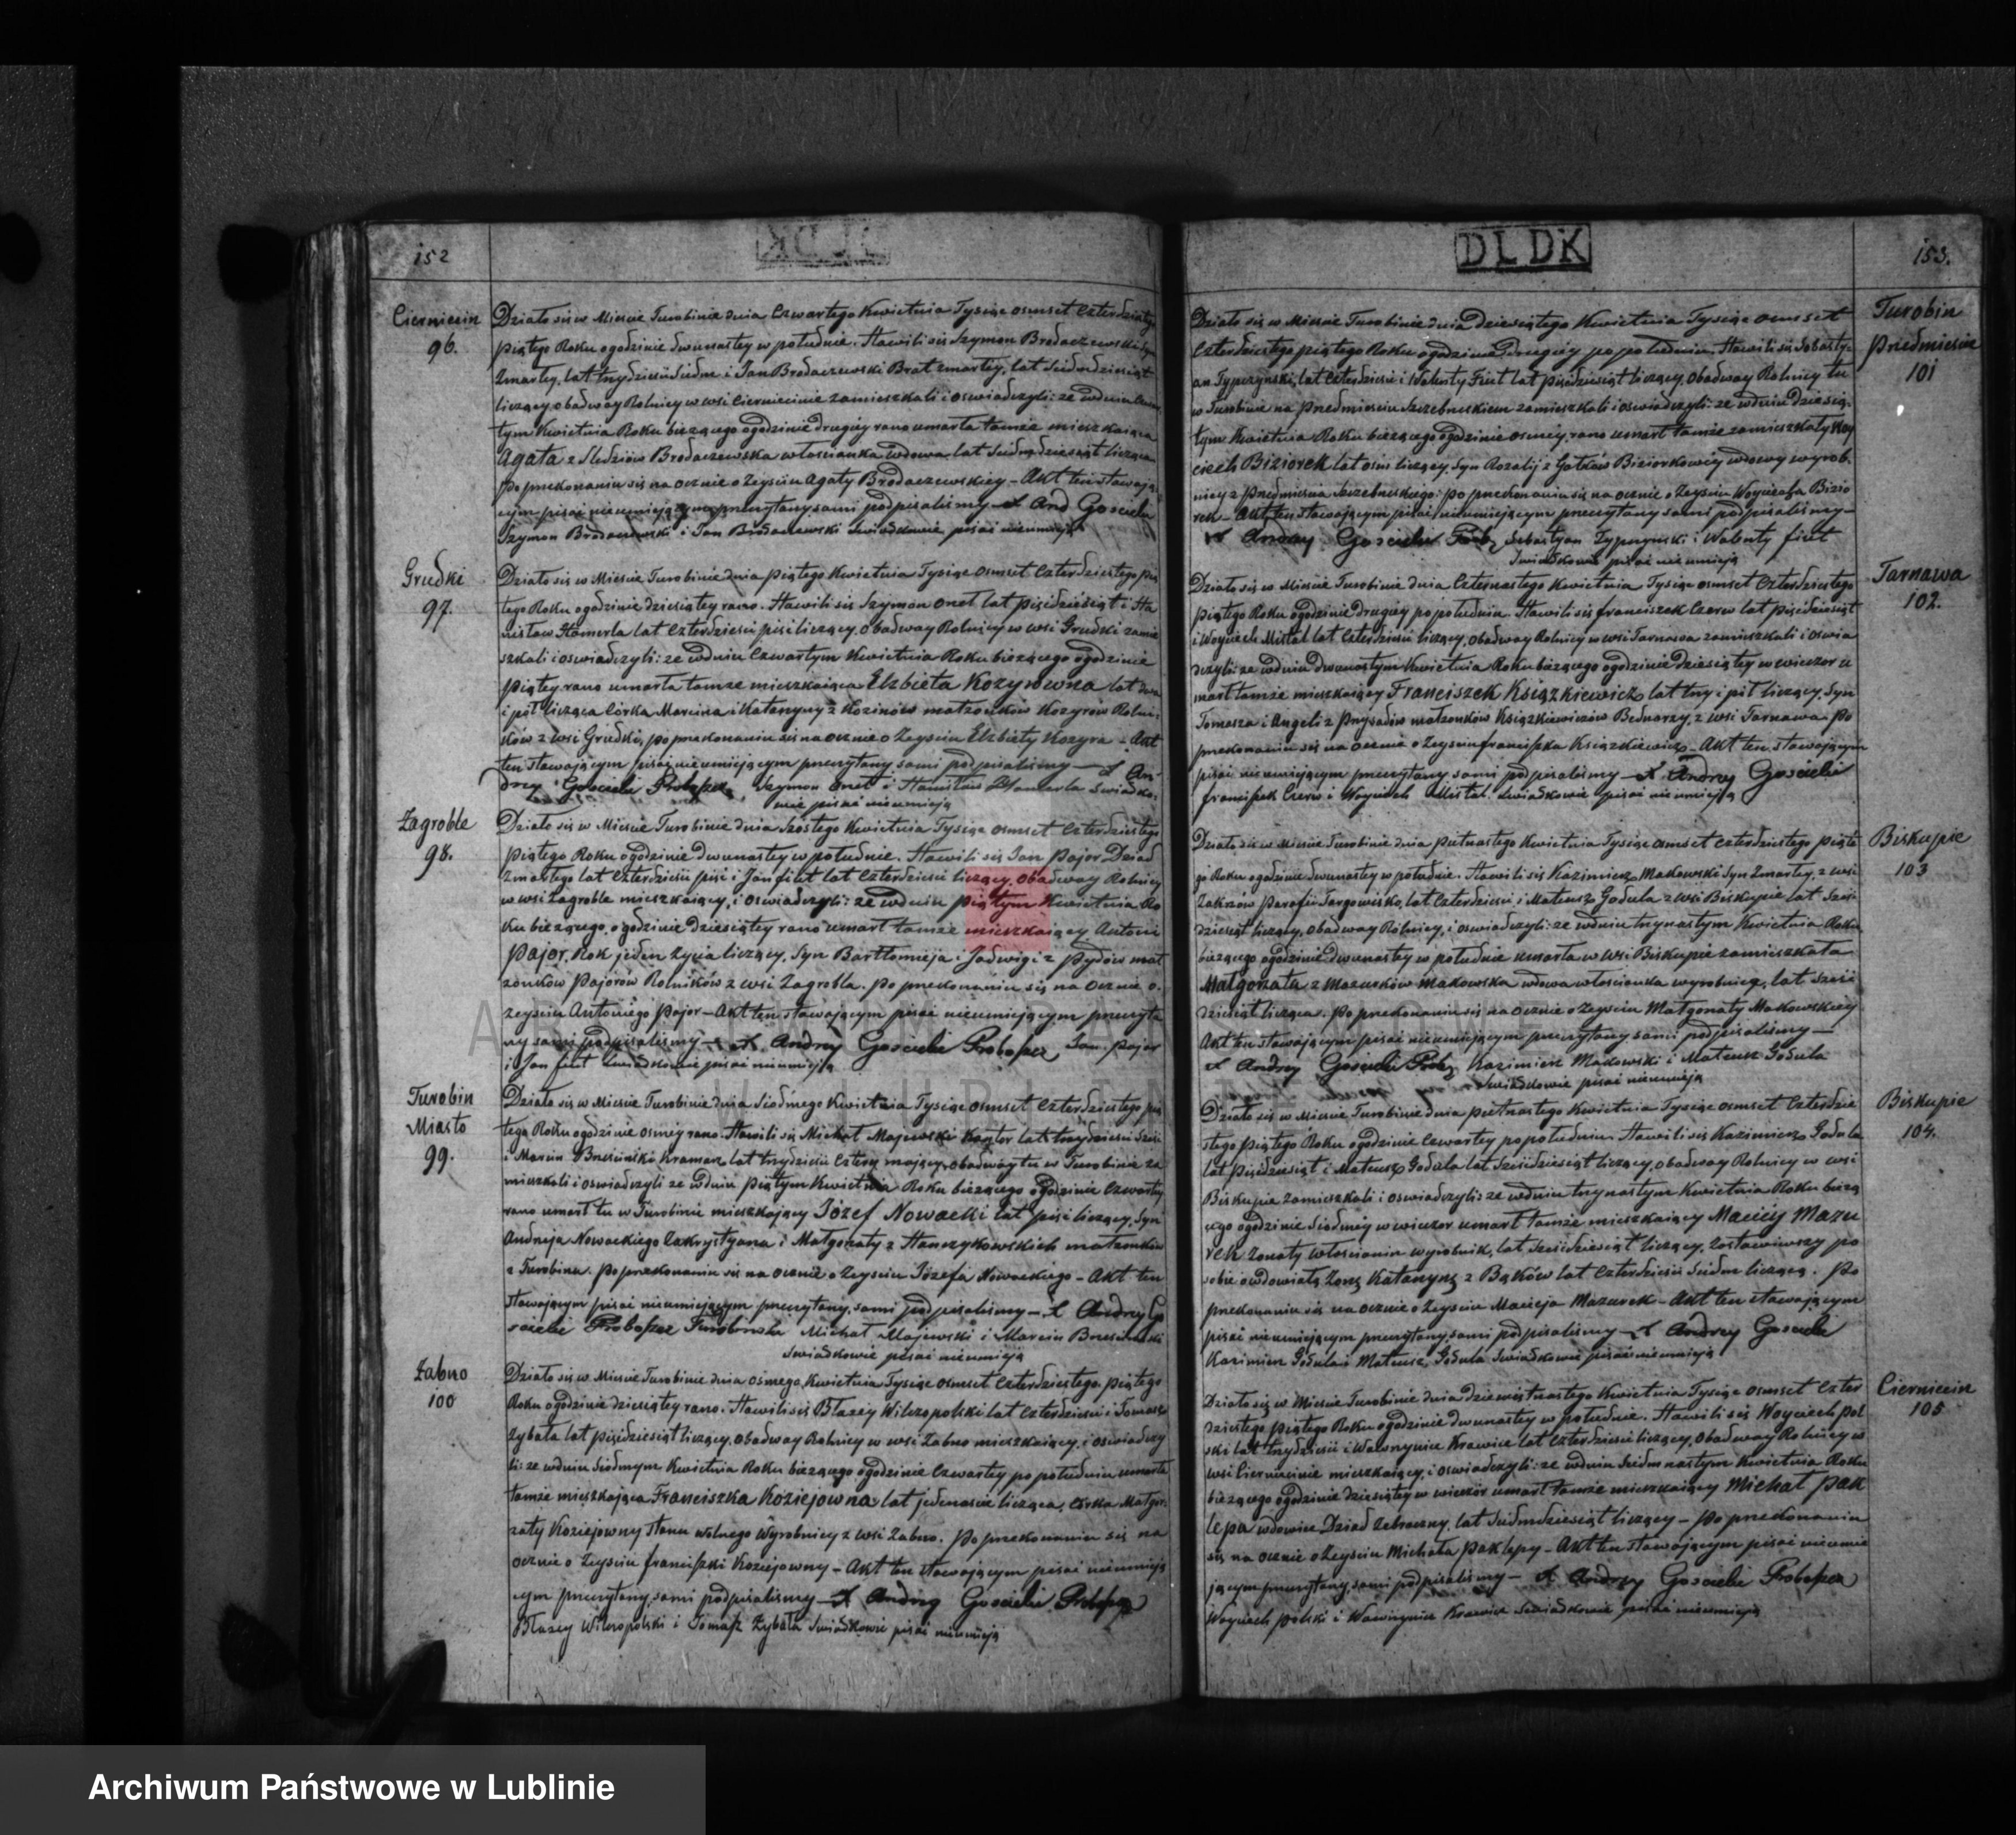 152
DLDK
Ciernięcin
96.
Działo się w Mieście Turobinie dnia Czwartego Kwietnia Tysiąc osmset Czterdziestego
piątego Roku ogodzinie dwunastey w południe. Stawili się Szymon Brodaczewski Syn
Zmarłey, lat trzydzieści siedm i Jan Brodaczewski Brat zmarłey, lat siedmdziesiąt
liczący, obadway Rolnicy w wsi Ciernięcinie zamieszkali i oswiadczyli: ze wdniu Czwar
tym Kwietnia Roku bieżącego ogodzinie drugiey rano umarła tamże mieszkaiąca
Agata z Sledziów Brodaczewska włoscianka wdowa lat siedmdziesiąt licząca
po przekonaniu się na ocznie o Zeysciu Agaty Brodaczewskiey – Akt ten stawaią
cym pisać nieumiejącym przeczytany, sami podpisalismy – X And Goscicki
Szymon Brodaczewski i Jan Brodaczewski Swiadkowie pisać nieumieją
Grudki
97.
Działo się w Mieście Turobinie dnia piątego Kwietnia Tysiąc osmset Czterdziestego pią
tego Roku ogodzinie dziesiątey rano. Stawili się Szymon Onet lat pięśdziesiąt i Sta
nisław Hamerla lat Czterdzieści pięć liczący, Obadway Rolnicy w wsi Grudki zamie
szkali i oswiadczyli: ze wdniu Czwartym Kwietnia Roku bieżącego ogodzinie
piątey rano umarła tamże mieszkaiąca Elzbieta Kozyrowna lat dwa
i pół licząca Córka Marcina i Katarzyny z Kozinów małzonków Kozyrów Rolni
ków z wsi Grudki, po przekonaniu się na ocznie o Zeysciu Elzbiety Kozyra – Akt
ten stawającym pisać nieumiejącym przeczytany, sami podpisalismy – X An-
drzy Goscicki Proboszcz Szymon Onet i Stanisław Hamerla Swiadko
wie pisać nieumieją
Zagroble
98.
Działo się w Mieście Turobinie dnia Szóstego Kwietnia Tysiąc osmset Czterdziestego
piątego Roku ogodzinie dwunastey w południe. Stawili się Jan Pajor Dziad
Zmarłego lat Czterdzieści pięć i Jan fiut lat Czterdzieści liczący, obadway Rolnicy
w wsi Zagroble mieszkaiący, i oswiadczyli: ze wdniu piątym Kwietnia Ro
ku bieżącego, ogodzinie dziesiątey rano umarł tamże mieszkaiący Antoni
Pajor, Rok jeden Zycia liczący, Syn Bartłomieja i Jadwigi z Pydów mał
zonków Pajorów Rolników z wsi Zagrobla. po przekonaniu się na ocznie o
zeysciu Antoniego Pajor – Akt ten stawającym pisać nieumiejącym przeczyta
ny sami podpisalismy – X. Andrzy Goscicki Proboszcz Jan Pajor
i Jan fiut Swiadkowie pisać nieumieją
Turobin
Miasto
99.
Działo się w Mieście Turobinie dnia Siodmego Kwietnia Tysiąc osmset Czterdziestego pią
tego Roku ogodzinie osmey rano. Stawili się Michał Majewski Kantor lat trzydzieści sześć
i Marcin Brzesinski Kramarz lat trzydzieści Cztery mający, obadway tu w Turobinie za
mieszkali i oswiadczyli ze wdniu piątym Kwietnia Roku bieżącego ogodzinie Czwartey
rano umarł tu w Turobinie mieszkający Józef Nowacki lat pięć liczący, Syn
Andrzeja Nowackiego Zakrystyana i Małgorzaty z Stanczykowskich małzonków
z Turobina. po przekonaniu się na ocznie o Zeysciu Józefa Nowackiego – Akt ten
stawającym pisać nieumiejącym przeczytany, sami podpisalismy – X Andrzy Go
scicki Proboszcz Turobinski Michał Majewski i Marcin Brzesinski
Swiadkowie pisać nieumieją
Zabno
100
Działo się w Mieście Turobinie dnia osmego Kwietnia Tysiąc osmset Czterdziestego piątego
Roku ogodzinie dziesiątey rano. Stawili się Błazey Wilczopolski lat Czterdzieści i Tomasz
Zybała lat pięśdziesiąt liczący, obadway Rolnicy w wsi Zabno mieszkaiący, i oswiadczy
li: ze wdniu siodmym Kwietnia Roku bieżącego ogodzinie Czwartey po południu umarła
tamże mieszkająca Franciszka Koziejowna lat jedenascie licząca, Córka Małgo
rzaty Koziejowny Stanu wolnego Wyrobnicy z wsi Zabno. Po przekonaniu się na
ocznie o Zeysciu franciszki Koziejowny – Akt ten stawającym pisać nieumieją
cym przeczytany, sami podpisalismy – X Andrzy Goscicki Proboszcz
Błazey Wilczopolski i Tomasz Zybała Swiadkowie pisać nieumieją
DLDK
153.
Turobin
przedmieście
101
Działo się w Mieście Turobinie dnia dziesiątego Kwietnia Tysiąc osmset
Czterdziestego piątego Roku ogodzinie drugiey po południu. Stawili się Sobesty
an Typrzynski, lat Czterdzieści i Walenty Fiut lat pięśdziesiąt liczący, obadway Rolnicy tu
w Turobinie na przedmieściu Szczebrzeskiem zamieszkali i oswiadczyli: ze wdniu dziesią
tym Kwietnia Roku bieżącego ogodzinie osmey rano umarł tamże zamieszkały Woy
ciech Biziorek lat osm liczący, Syn Rozalij z Gałków Biziorkowey wdowy wyrob
nicy z przedmieścia Szczebrzeskiego: po przekonaniu się na ocznie o Zeysciu Woyciecha Bizio
rek – Akt ten stawającym pisać nieumiejącym przeczytany sami podpisalismy –
X Andrzy Goscicki Prob. Sebastyan Typrzynski i Walenty fiut
Swiadkowie pisać nieumieją
Tarnawa
102.
Działo się w Mieście Turobinie dnia Czternastego Kwietnia Tysiąc osmset Czterdziestego
piątego Roku ogodzinie drugiey po południu. Stawili się franciszek Czerw lat pięśdziesiąt
i Woyciech Mistal lat Czterdzieści liczący, obadway Rolnicy w wsi Tarnawa zamieszkali i oswia
dczyli: ze wdniu dwunastym Kwietnia Roku bieżącego ogodzinie dziesiątey w wieczor u
marł tamże mieszkaiący Franciszek Książkiewicz lat trzy i pół liczący, Syn
Tomasza i Angeli z Przysadów małzonków Książkiewiczów Bednarzy, z wsi Tarnawa. po
przekonaniu się na ocznie o Zeysciu franciszka Książkiewicz – Akt ten stawającym
pisać nieumiejącym przeczytany sami podpisalismy – X Andrzy Goscicki
franciszek Czerw i Woyciech Mistal Swiadkowie pisać nieumieją
Biskupie
103
Działo się w Mieście Turobinie dnia piętnastego Kwietnia Tysiąc osmset czterdziestego piąte
go Roku ogodzinie dwunastey w południe. Stawili się Kazimierz Makowski Syn Zmarłey, z wsi
Zakrzów Parafii Targowisko, lat Czterdzieści i Mateusz Goduła z wsi Biskupie lat sześć
dziesiąt liczący, obadway Rolnicy, i oswiadczyli: ze wdniu trzynastym Kwietnia Roku
bieżącego ogodzinie dwunastey w południe umarła w wsi Biskupie zamieszkała
Małgorzata z Mazurków Makowska wdowa włoscianka wyrobnica, lat sześć
dziesiąt licząca. po przekonaniu się na ocznie o Zeysciu Małgorzaty Makowskiey
Akt ten stawającym pisać nieumiejącym przeczytany sami podpisalismy –
X Andrzy Goscicki Prob Kazimierz Makowski i Mateusz Goduła
Swiadkowie pisać nieumieją
Biskupie
104.
Działo się w Mieście Turobinie dnia piętnastego Kwietnia Tysiąc osmset Czterdzie
stego piątego Roku ogodzinie Czwartey po południu. Stawili się Kazimierz Goduła
lat pięśdziesiąt i Mateusz Goduła lat sześćdziesiąt liczący, obadway Rolnicy w wsi
Biskupie zamieszkali i oswiadczyli: ze wdniu trzynastym Kwietnia Roku bieżą
cego ogodzinie siodmey w wieczor umarł tamże mieszkaiący Maciey Mazu
rek Zonaty włoscianin wyrobnik, lat sześćdziesiąt liczący, Zostawiwszy po
sobie owdowiałą Zonę Katarzynę z Bąków lat Czterdzieści siedm liczącą. Po
przekonaniu się na ocznie o Zeysciu Macieja Mazurek – Akt ten stawającym
pisać nieumiejącym przeczytany, sami podpisalismy – X Andrzy Goscicki
Kazimierz Goduła i Mateusz Goduła Swiadkowie pisać nieumieją
Ciernięcin
105
Działo się w Mieście Turobinie dnia dziewiętnastego Kwietnia Tysiąc osmset Czter
dziestego piątego Roku ogodzinie dwunastey w południe. Stawili się Woyciech Pol
ski lat trzydzieści i Wawrzyniec Krawiec lat Czterdzieści liczący, Obadway Rolnicy w
wsi Ciernięcinie mieszkaiący, i oswiadczyli: ze wdniu siedmnastym Kwietnia Roku
bieżącego ogodzinie dziesiątey w wieczór umarł tamże mieszkaiący Michał Pak
lepa wdowiec Dziad żebraczny, lat siedmdziesiąt liczący – po przekonaniu
się na ocznie o Zeysciu Michała Paklepy – Akt ten stawającym pisać nieumie
jącym przeczytany, sami podpisalismy – X Andrzy Goscicki Proboszcz
Woyciech Polski i Wawrzyniec Krawiec Swiadkowie pisać nieumieją
Archiwum Państwowe w Lublinie